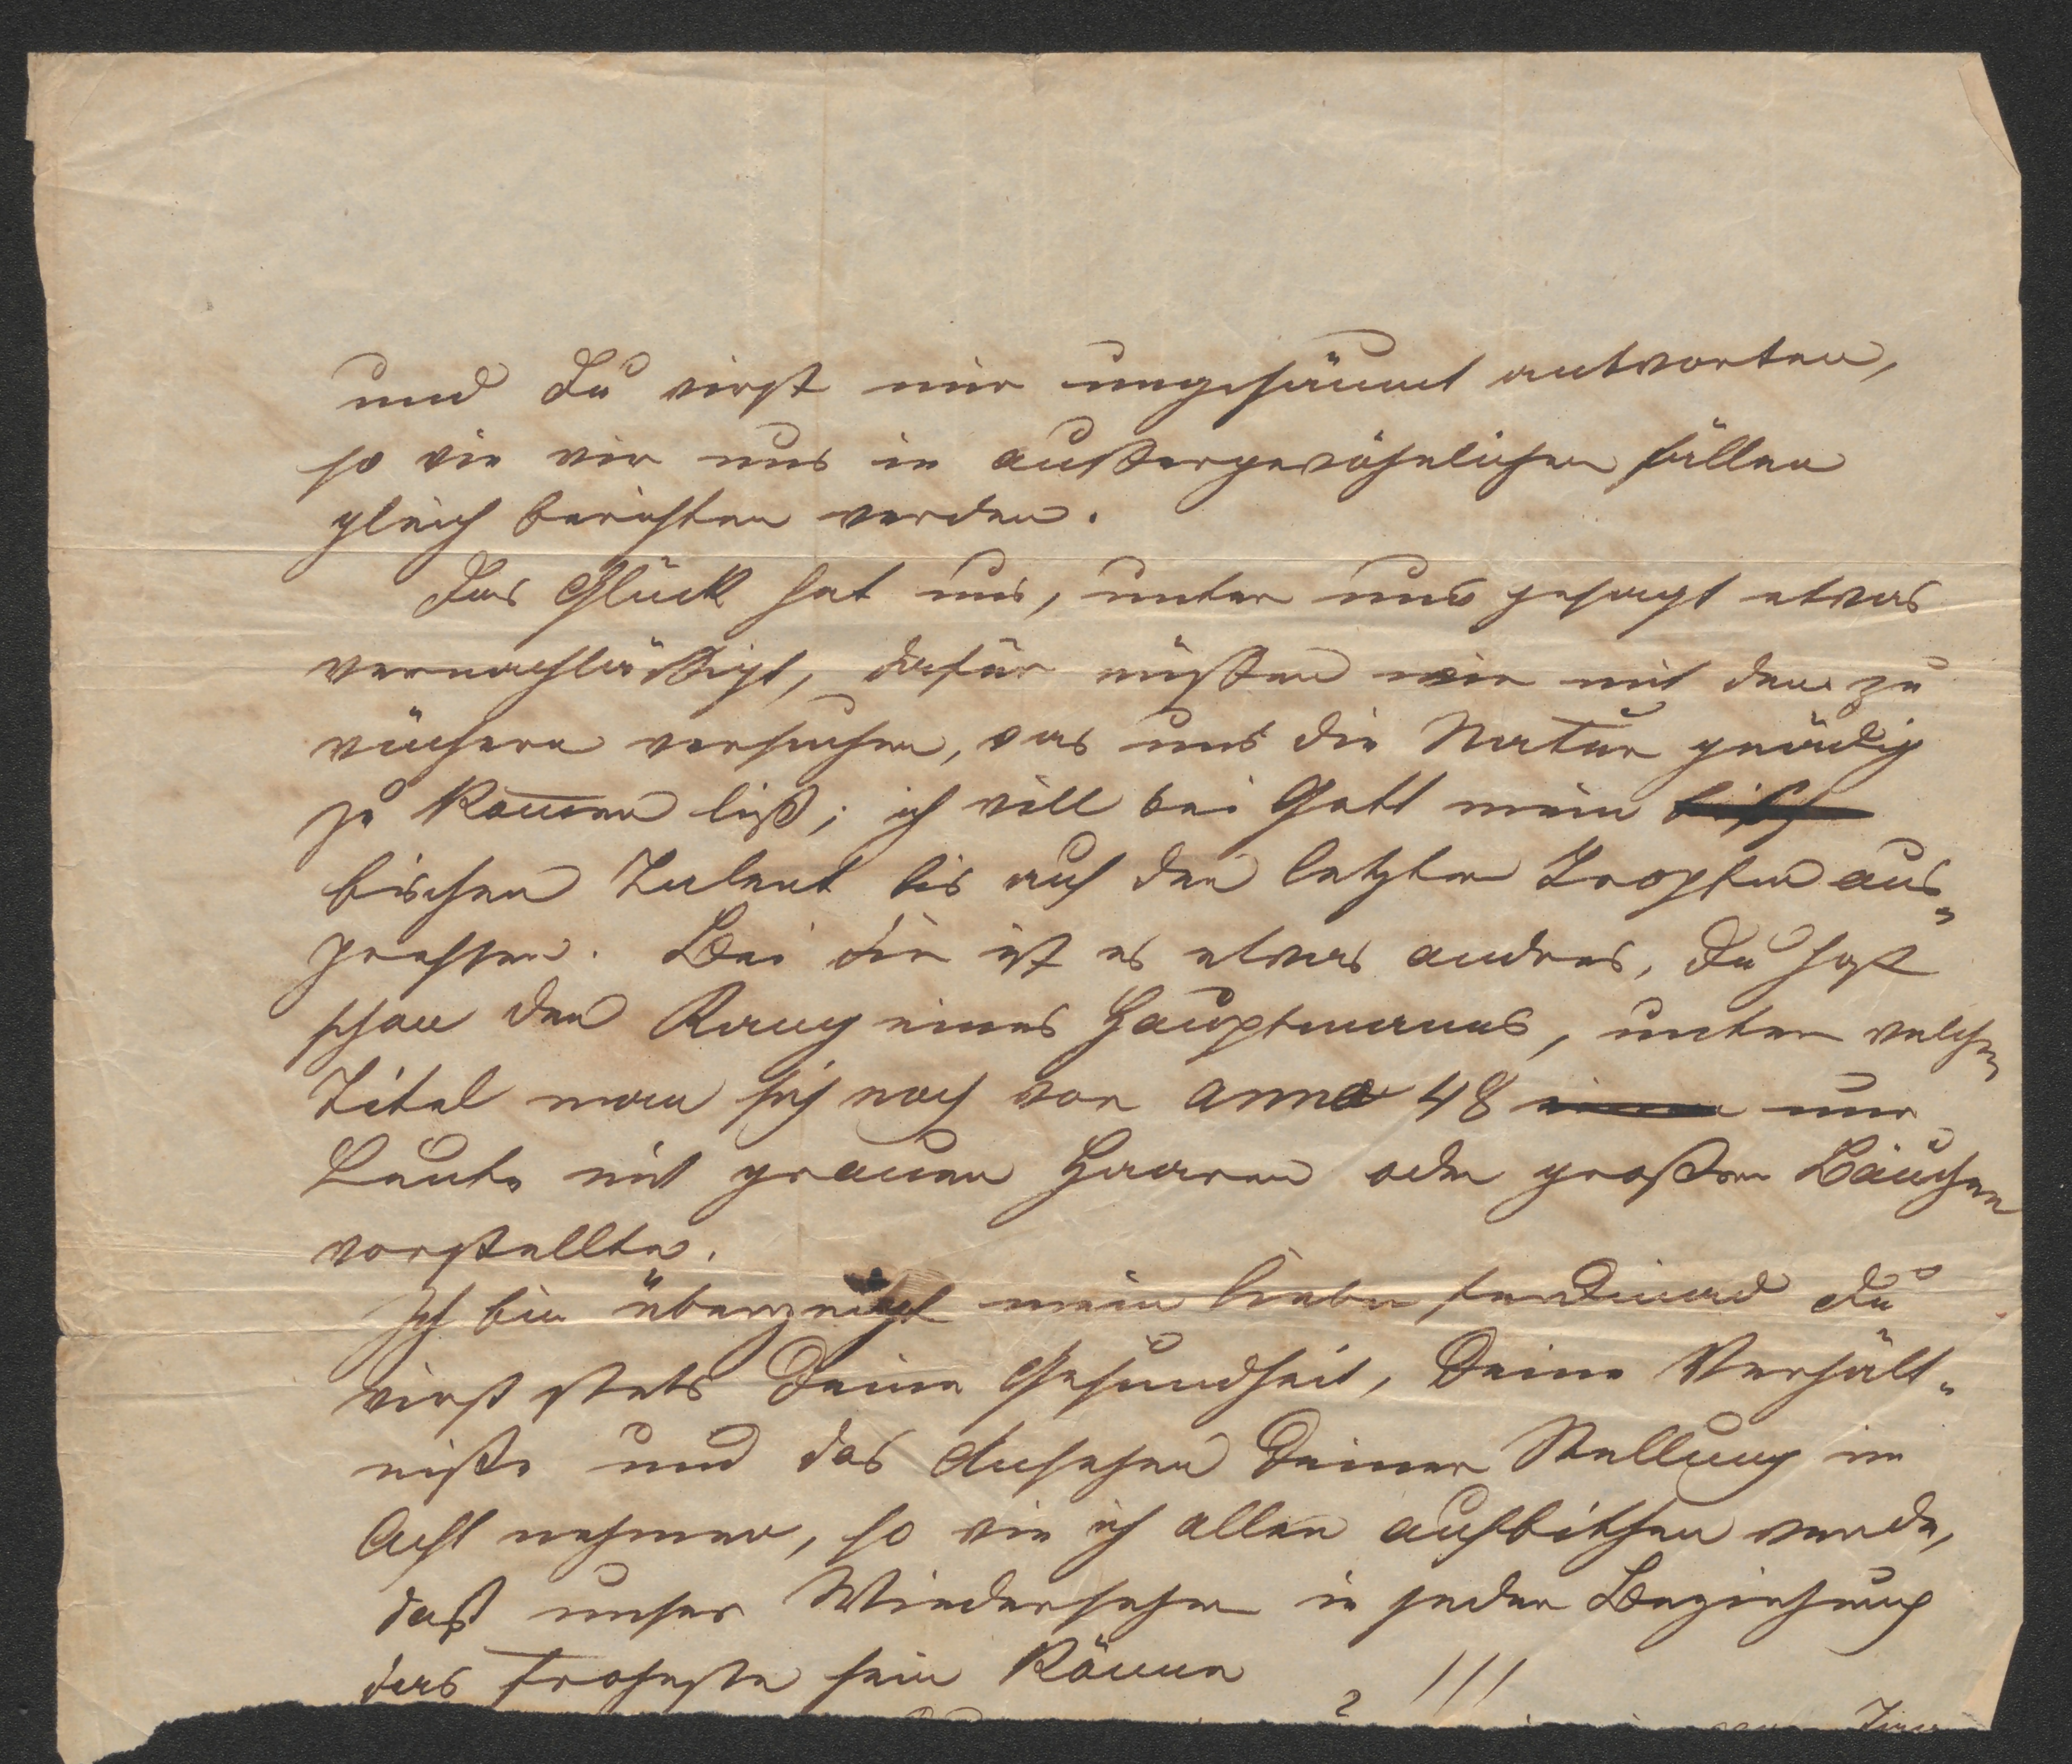 und Du wirst mir ungesäumt antworten,
so wie wir uns in außergewöhnlichen fällen
gleich berichten werden.
Das Glück hat uns, unter uns gesagt etwas
vernachläßigt, dafür müßen wir mit dem zu
wuchern versuchen, was uns die Natur gnädig
zu kom̅en ließ; ich will bei Gott mein bisch
bischen Talent bis auf den letzten Tropfen aus„
pressen. Bei dir ist es etwas andres, Du hast
schon den Rang eines Hauptmanns, unter welchen
Titel man sich noch vor anno 48 nur
Leute mit grauen Haaren oder großen Bäuchen
vorstellte.
Ich bin überzeugt mein lieber Ferdinand Du
wirst stets Deine Gesundheit, Deine Verhält„
niße und das Ansehen Deiner Stellung in
Acht nehmen, so wie ich allen aufbithen werde,
daß unser Wiedersehen in jeder Beziehung
das froheste sein könne !!!